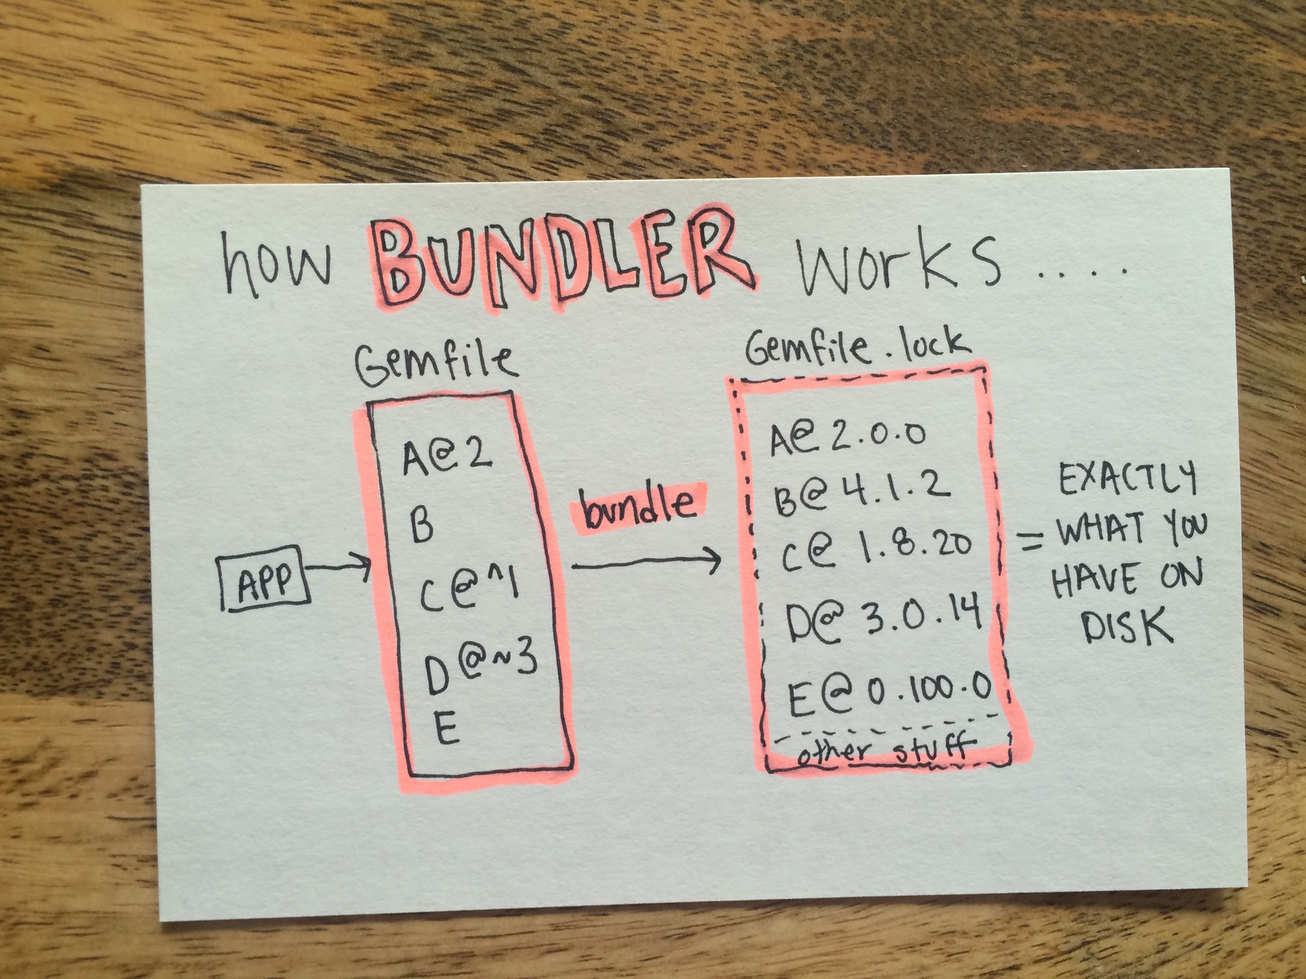 how BUNDLER works ....
Gemfile
A@2
B
C@^1
D@~3
E
APP
bundle
Gemfile.lock
A@2.0.0
B@4.1.2
C@1.8.20
D@3.0.14
E@0.100.0
other stuff
= EXACTLY
WHAT YOU
HAVE ON
DISK